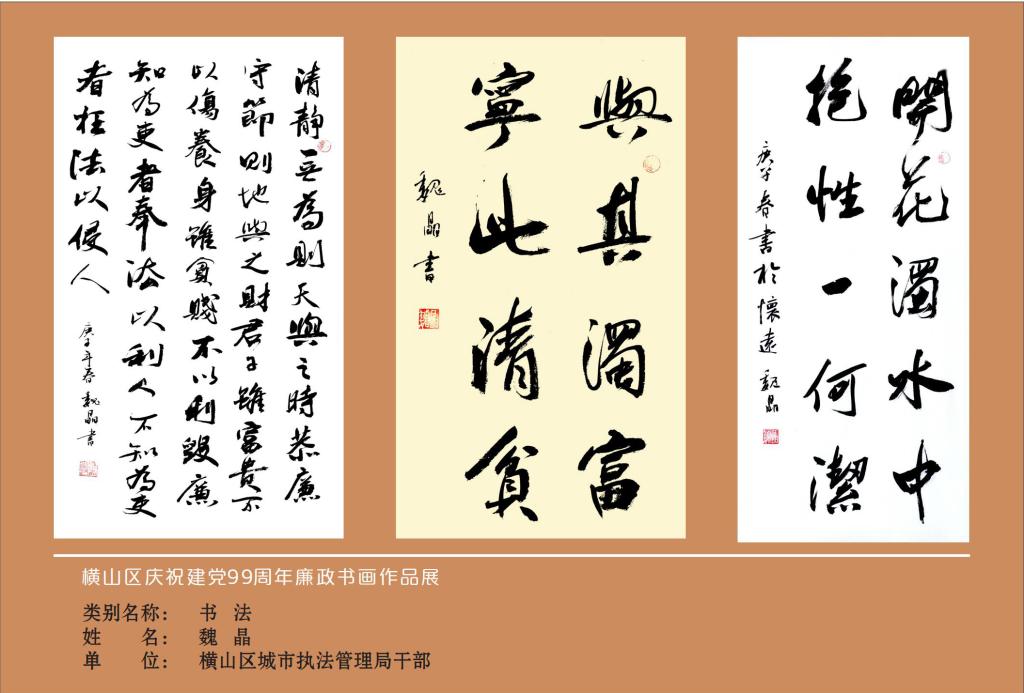 清静无為則天與之時恭廉
守節則地與之財君子雖富貴不
以傷養身雖貧賤不以利毀廉
知為吏者奉法以利人不知為吏
者枉法以侵人
庚子年春魏晶書
與其濁富
寧此清貧
魏晶書
開花濁水中
抱性一何潔
庚子春書於懷遠 魏晶
横山区庆祝建党99周年廉政书画作品展
类别名称： 书 法
姓 名： 魏 晶
单 位： 横山区城市执法管理局干部